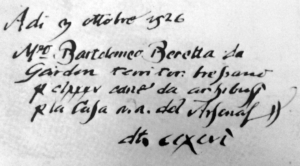 Adi 3 ottobre 1526
Mro Bartolomeo Beretta da
Gardon territor bressano
p clxxxv cane da archibusi
p la Casa n.a. del Arsenal
dti cclxxxxvi